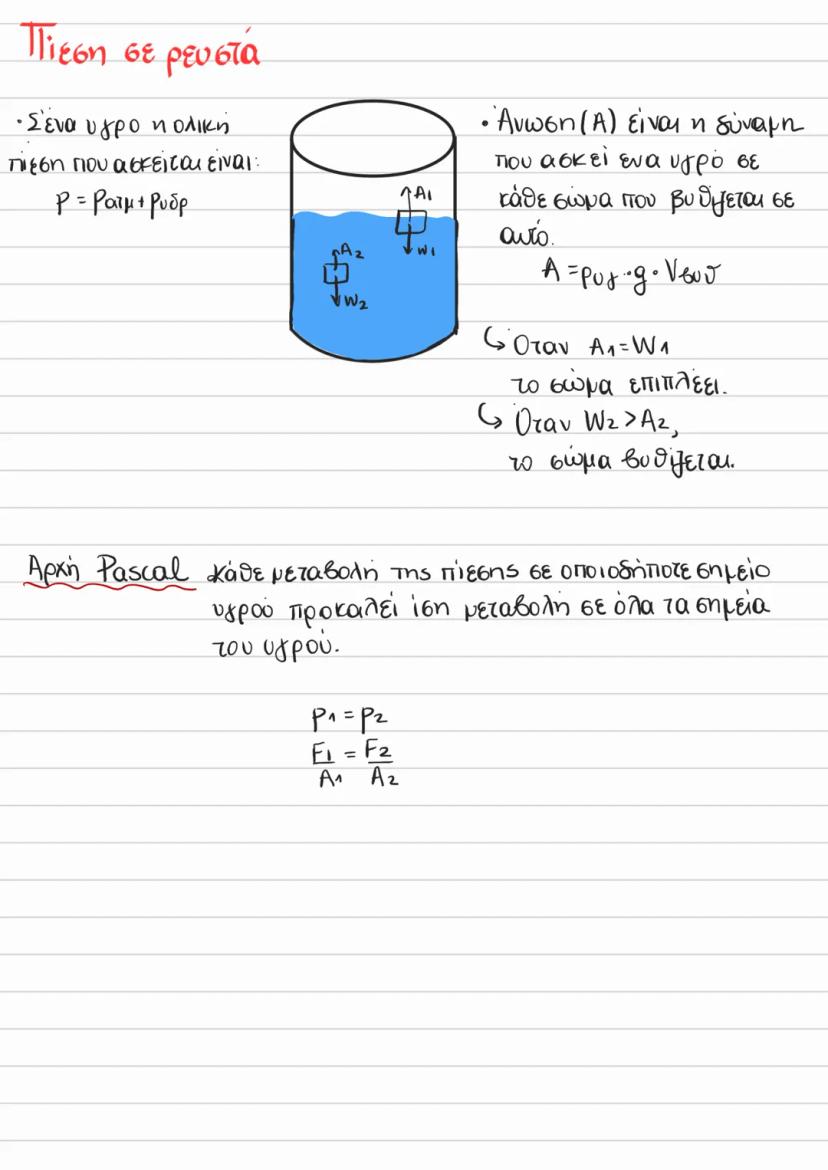 Πίεση σε ρευστά
• Σ'ένα υγρο η ολική
πίεση που ασκείται είναι:
P = Pατμ + Pυδρ
A1
W1
A2
W2
• Άνωση (A) είναι η δύναμη
που ασκεί ενα υγρό σε
κάθε σώμα που βυθίζεται σε
αυτό.
A = ρυγ · g · Vβυθ
↳ Όταν A1 = W1
το σώμα επιπλέει.
↳ Όταν W2 > A2,
το σώμα βυθίζεται.
Αρχή Pascal κάθε μεταβολή της πίεσης σε οποιοδήποτε σημείο
υγρού προκαλεί ίση μεταβολή σε όλα τα σημεία
του υγρού.
P1 = P2
F1/A1 = F2/A2